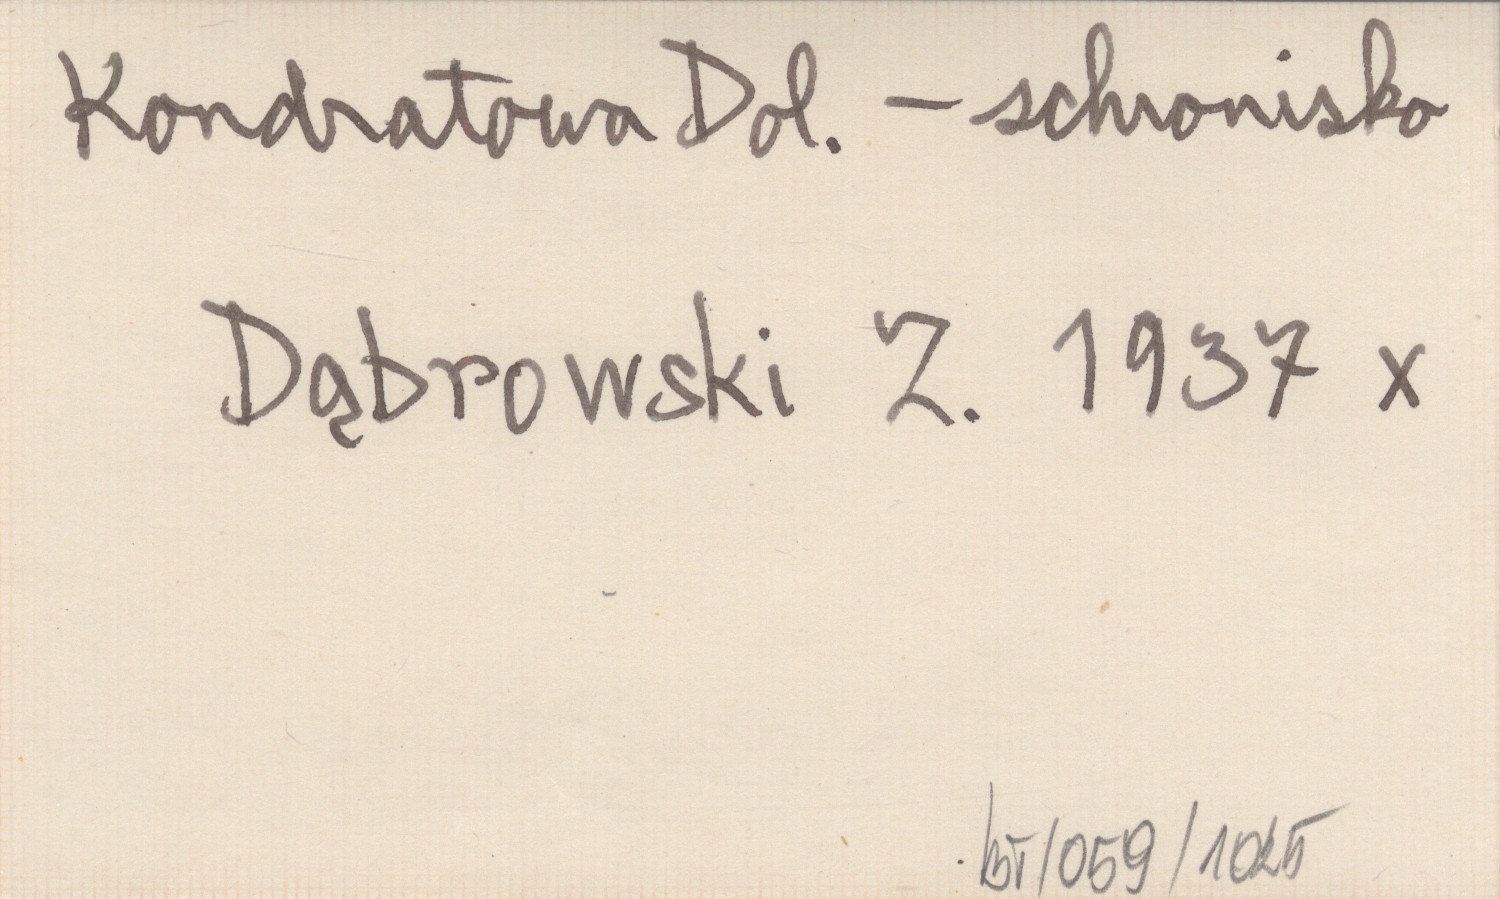 Kondratowa Dol. – schronisko
Dąbrowski Z. 1937 x
/059/1025